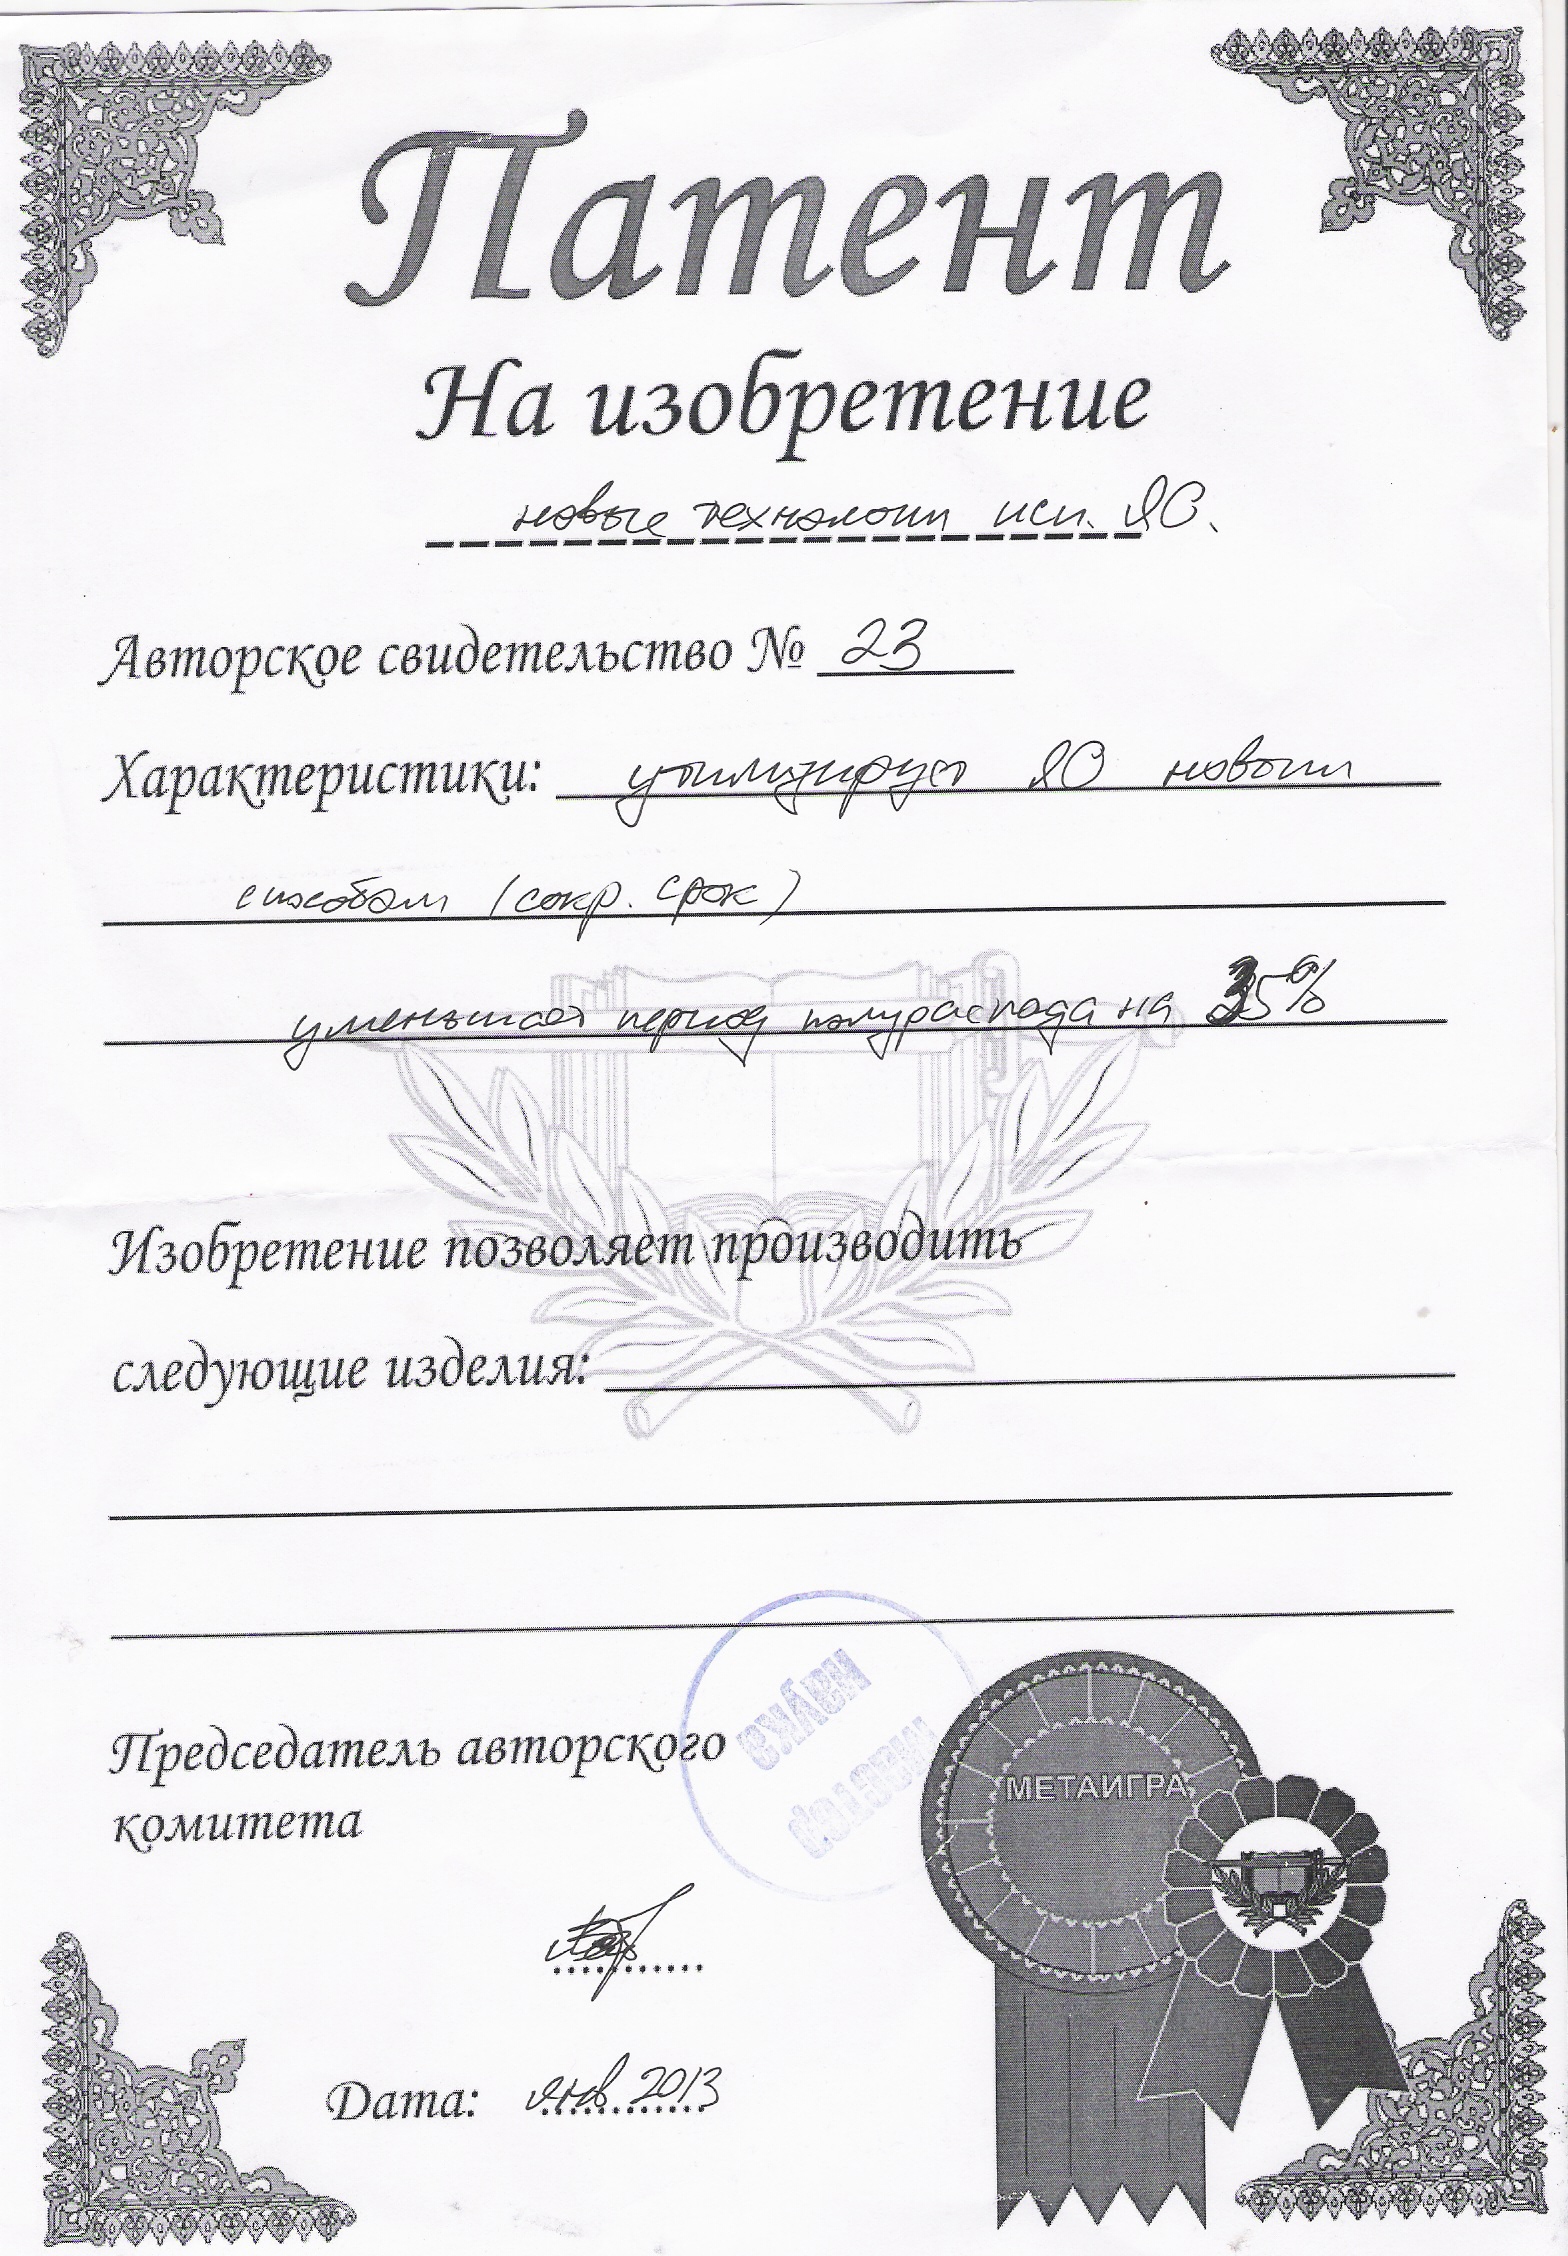 Патент
На изобретение
новые технологии исп. ЯО.
Авторское свидетельство № 23
Характеристики: утилизирует ЯО новым
способом (сокр. срок)
уменьшает период полураспада на 35%
Изобретение позволяет производить
следующие изделия:
наука
мастер
Председатель авторского
комитета
МЕТАИГРА
Дата: янв. 2013